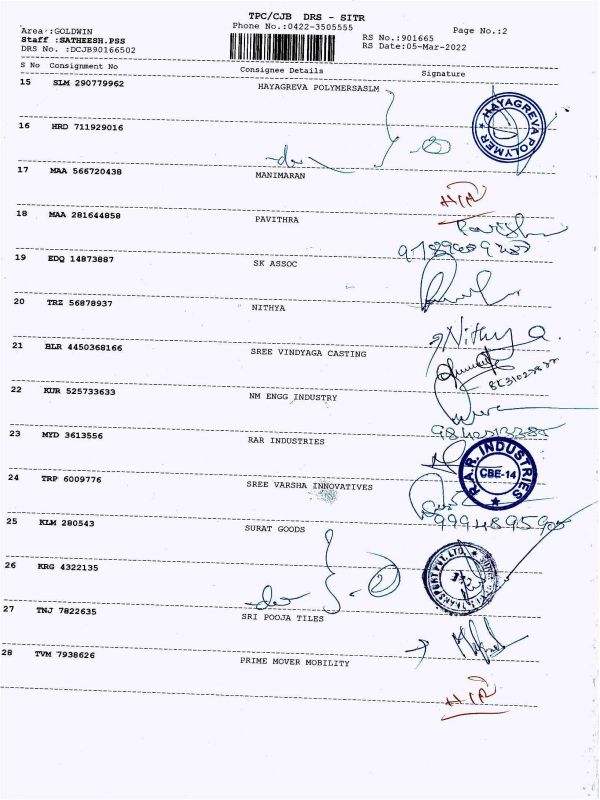 TPC/CJB DRS - SITR
Phone No.:0422-3505555
Area :GOLDWIN
Staff :SATHEESH.PSS
DRS No. :DCJB90166502
RS No.:901665
RS Date:05-Mar-2022
Page No.:2
S No Consignment No Consignee Details Signature
15 SLM 290779962 HAYAGREVA POLYMERSASLM
HAYAGREVA POLYMER
16 HRD 711929016
17 MAA 566720438 MANIMARAN
18 MAA 281644858 PAVITHRA
19 EDQ 14873887 SK ASSOC
20 TRZ 56878937 NITHYA
Nithya
21 BLR 4450368166 SREE VINDYAGA CASTING
22 KUR 525733633 NM ENGG INDUSTRY
23 MYD 3613556 RAR INDUSTRIES
R.A.R. INDUSTRIES
CBE-14
24 TRP 6009776 SREE VARSHA INNOVATIVES
25 KLM 280543 SURAT GOODS
26 KRG 4322135
27 TNJ 7822635 SRI POOJA TILES
28 TVM 7938626 PRIME MOVER MOBILITY